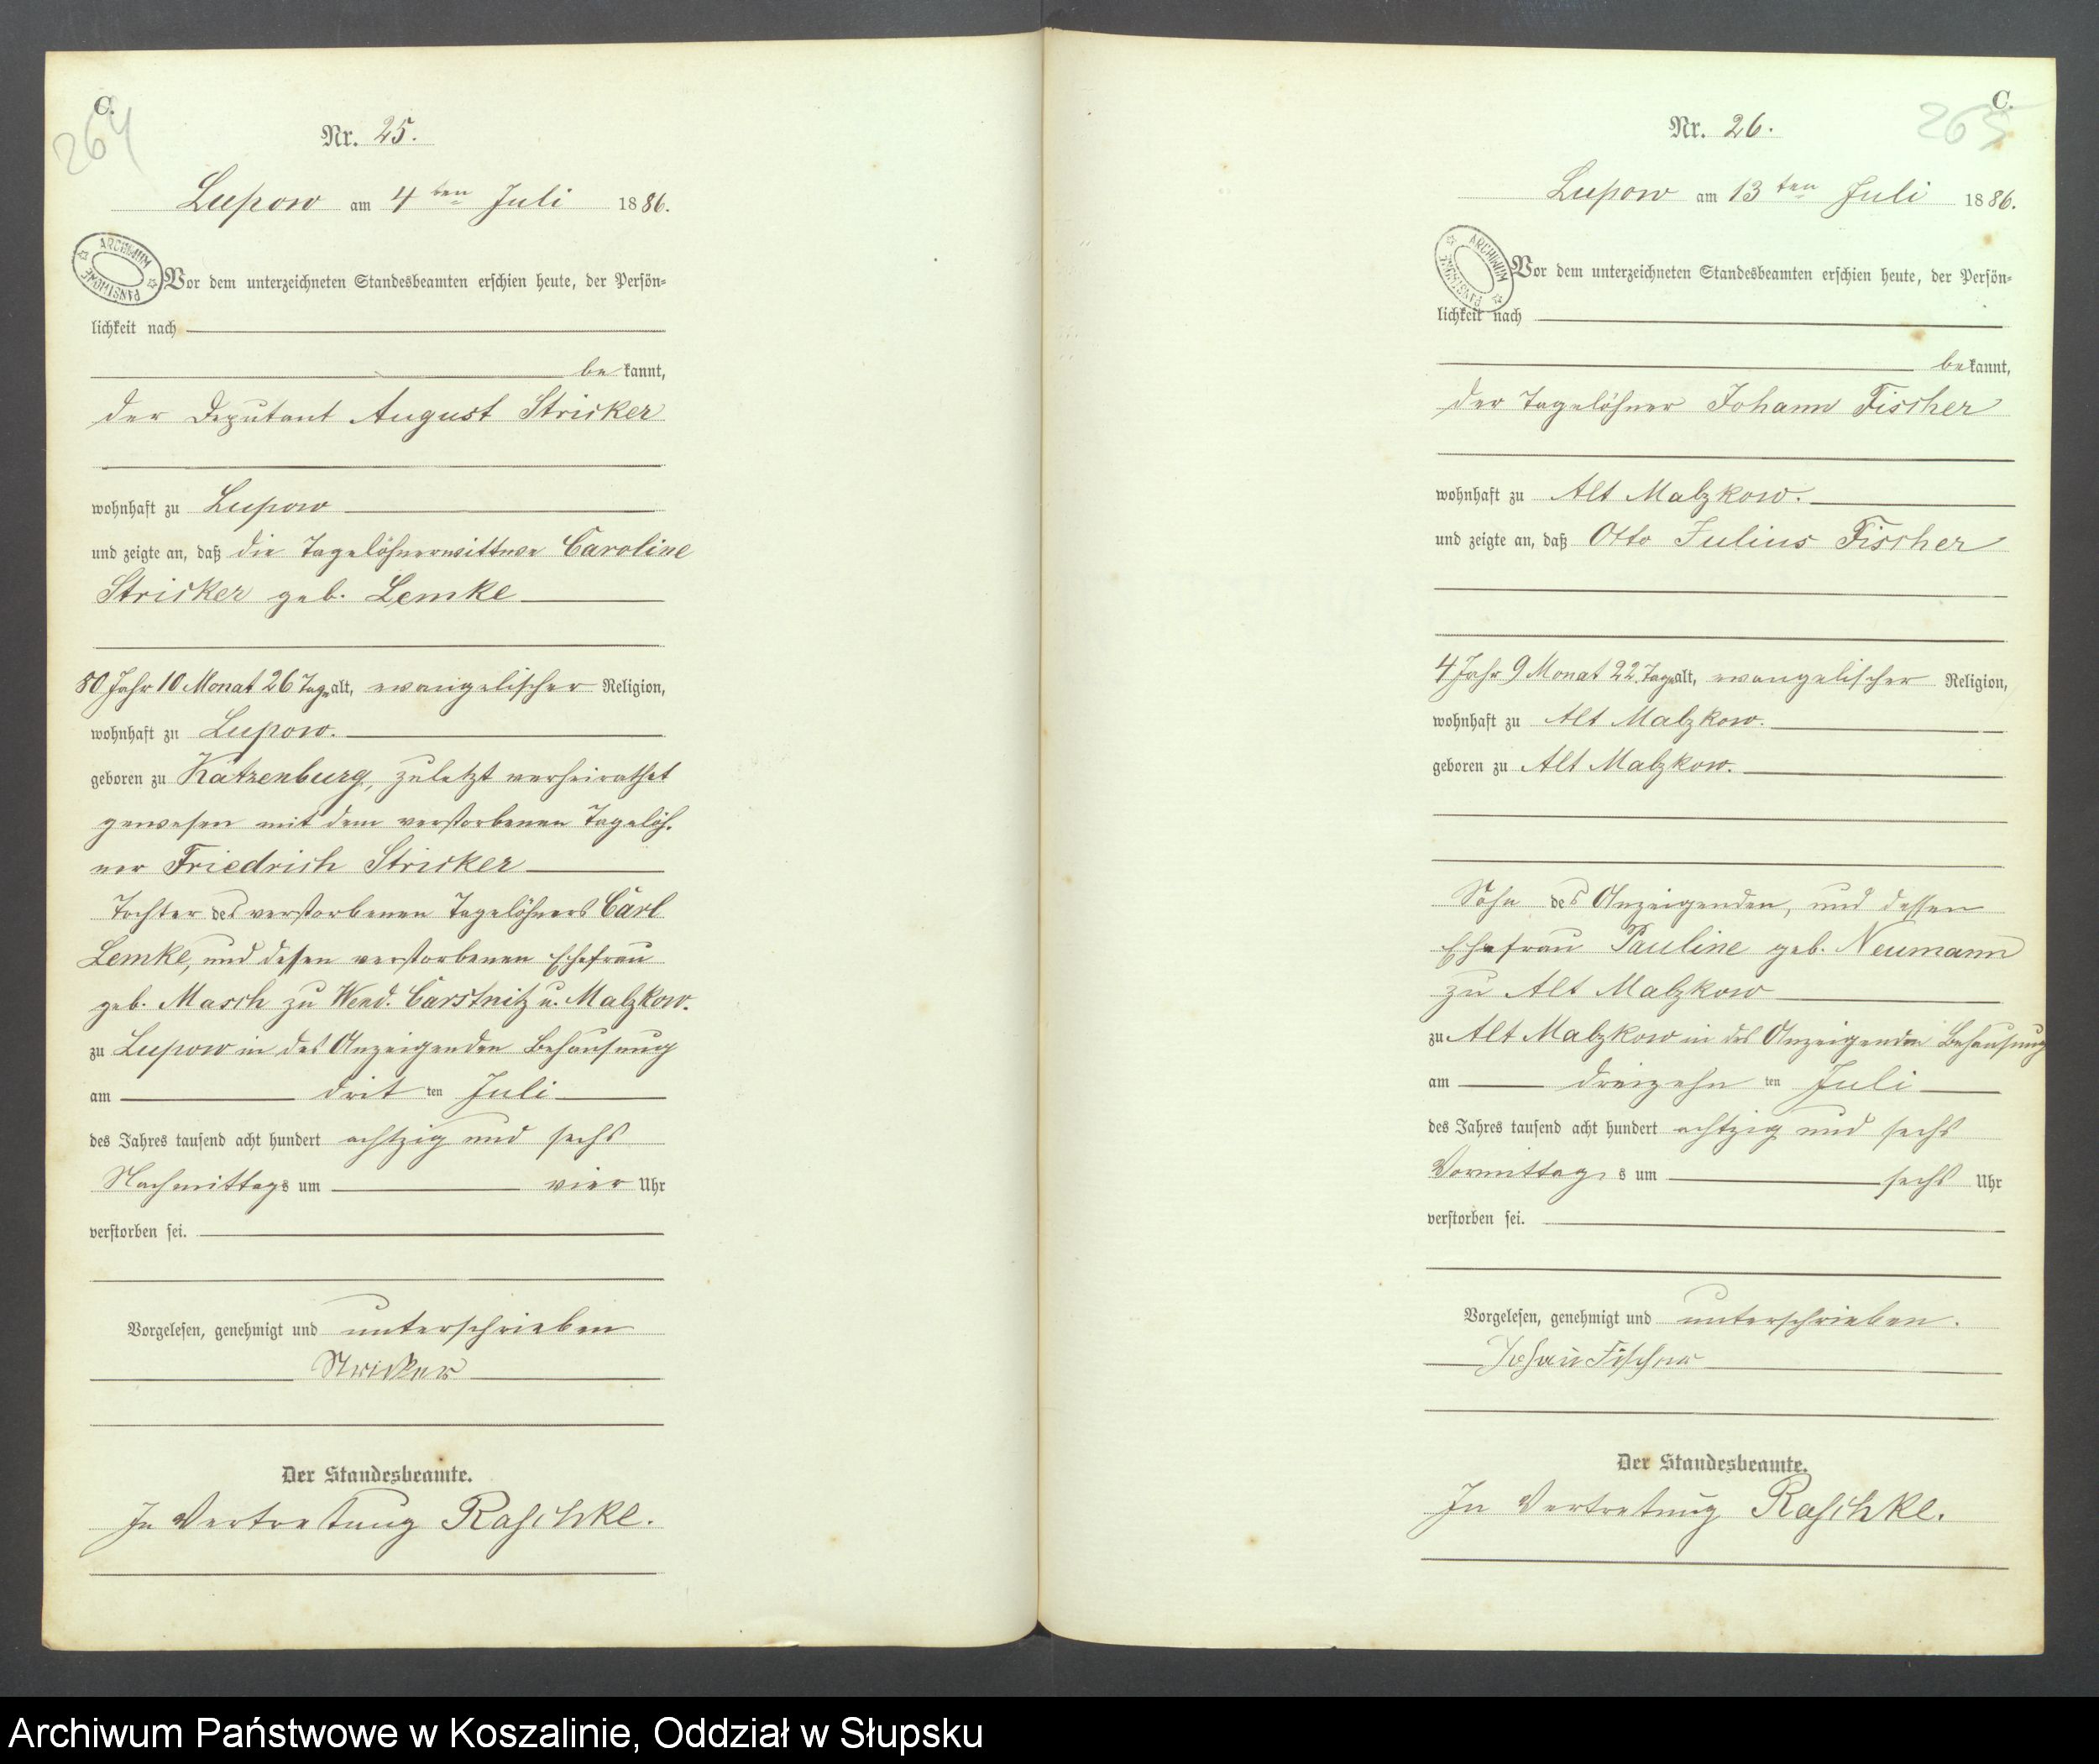 C.
264
Nr. 25.
Lupow am 4ten Juli 1886.
ARCHIWUM PAŃSTWOWE
Vor dem unterzeichneten Standesbeamten erschien heute, der Persön-
lichkeit nach
bekannt,
der Deputant August Stricker
wohnhaft zu Lupow
und zeigte an, daß die Tagelöhnerwittwe Caroline
Stricker geb. Lemke
80 Jahr 10 Monat 26 Tage alt, evangelischer Religion,
wohnhaft zu Lupow.
geboren zu Katzenburg, zuletzt verheirathet
gewesen mit dem verstorbenen Tagelöh-
ner Friedrich Stricker
Tochter des verstorbenen Tagelöhners Carl
Lemke, und dessen verstorbenen Ehefrau
geb. Masch zu Wend. Carstnitz u. Malzkow.
zu Lupow in des Anzeigenden Behausung
am dritten Juli
des Jahres tausend acht hundert achtzig und sechs
Nachmittags um vier Uhr
verstorben sei.
Vorgelesen, genehmigt und unterschrieben
Stricker
Der Standesbeamte.
In Vertretung Raschke.
C.
265
Nr. 26.
Lupow am 13ten Juli 1886.
ARCHIWUM PAŃSTWOWE
Vor dem unterzeichneten Standesbeamten erschien heute, der Persön-
lichkeit nach
bekannt,
der Tagelöhner Johann Fischer
wohnhaft zu Alt Malzkow.
und zeigte an, daß Otto Julius Fischer
4 Jahr 9 Monat 22 Tage alt, evangelischer Religion,
wohnhaft zu Alt Malzkow.
geboren zu Alt Malzkow.
Sohn des Anzeigenden, und dessen
Ehefrau Pauline geb. Neumann
zu Alt Malzkow
zu Alt Malzkow in des Anzeigenden Behausung
am dreizehnten Juli
des Jahres tausend acht hundert achtzig und sechs
Vormittags um sechs Uhr
verstorben sei.
Vorgelesen, genehmigt und unterschrieben.
Johan Fischer
Der Standesbeamte.
In Vertretung Raschke.
Archiwum Państwowe w Koszalinie, Oddział w Słupsku